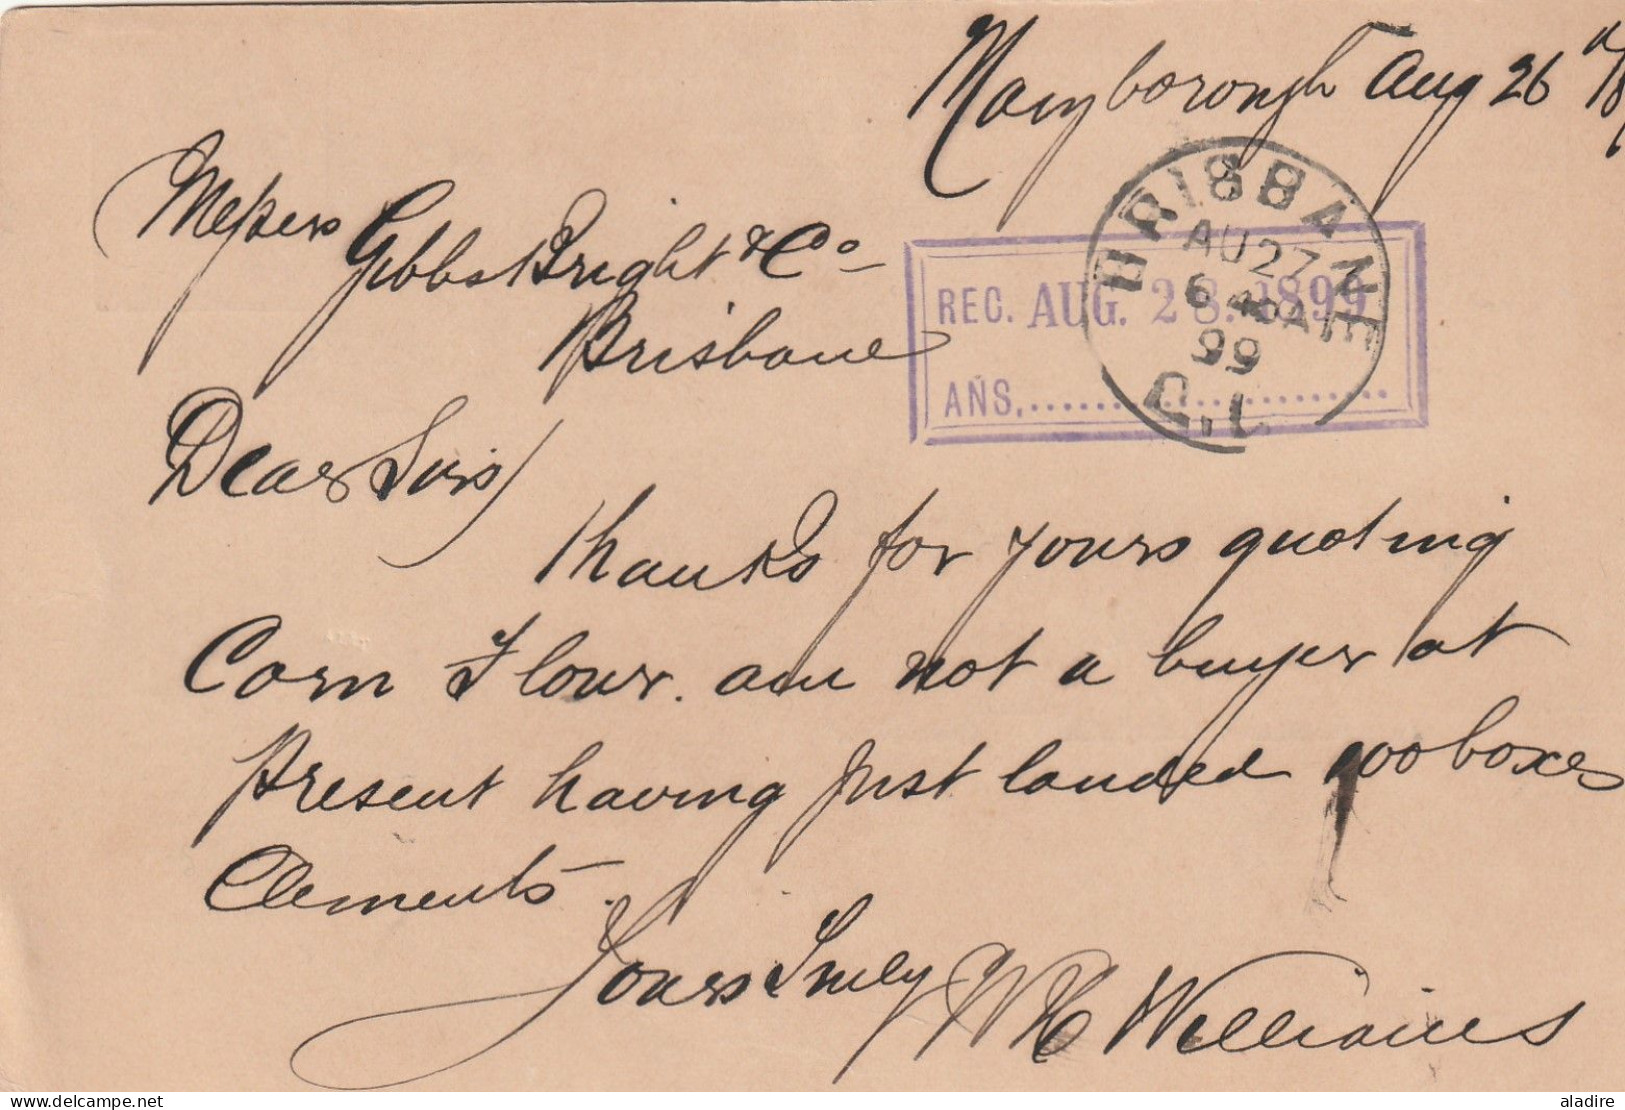 Maryborough Aug 26
Messers
Gibbs Bright & Co
Brisbane
BRISBANE
AU 27
6 40 A
99
REC. AUG. 28. 1899
ANS.......................
Dear Sirs
Thanks for yours quoting
Corn Flour. am not a buyer at
Present having just landed boxes
Clements.
Yours Truly
W H Williams
aladire